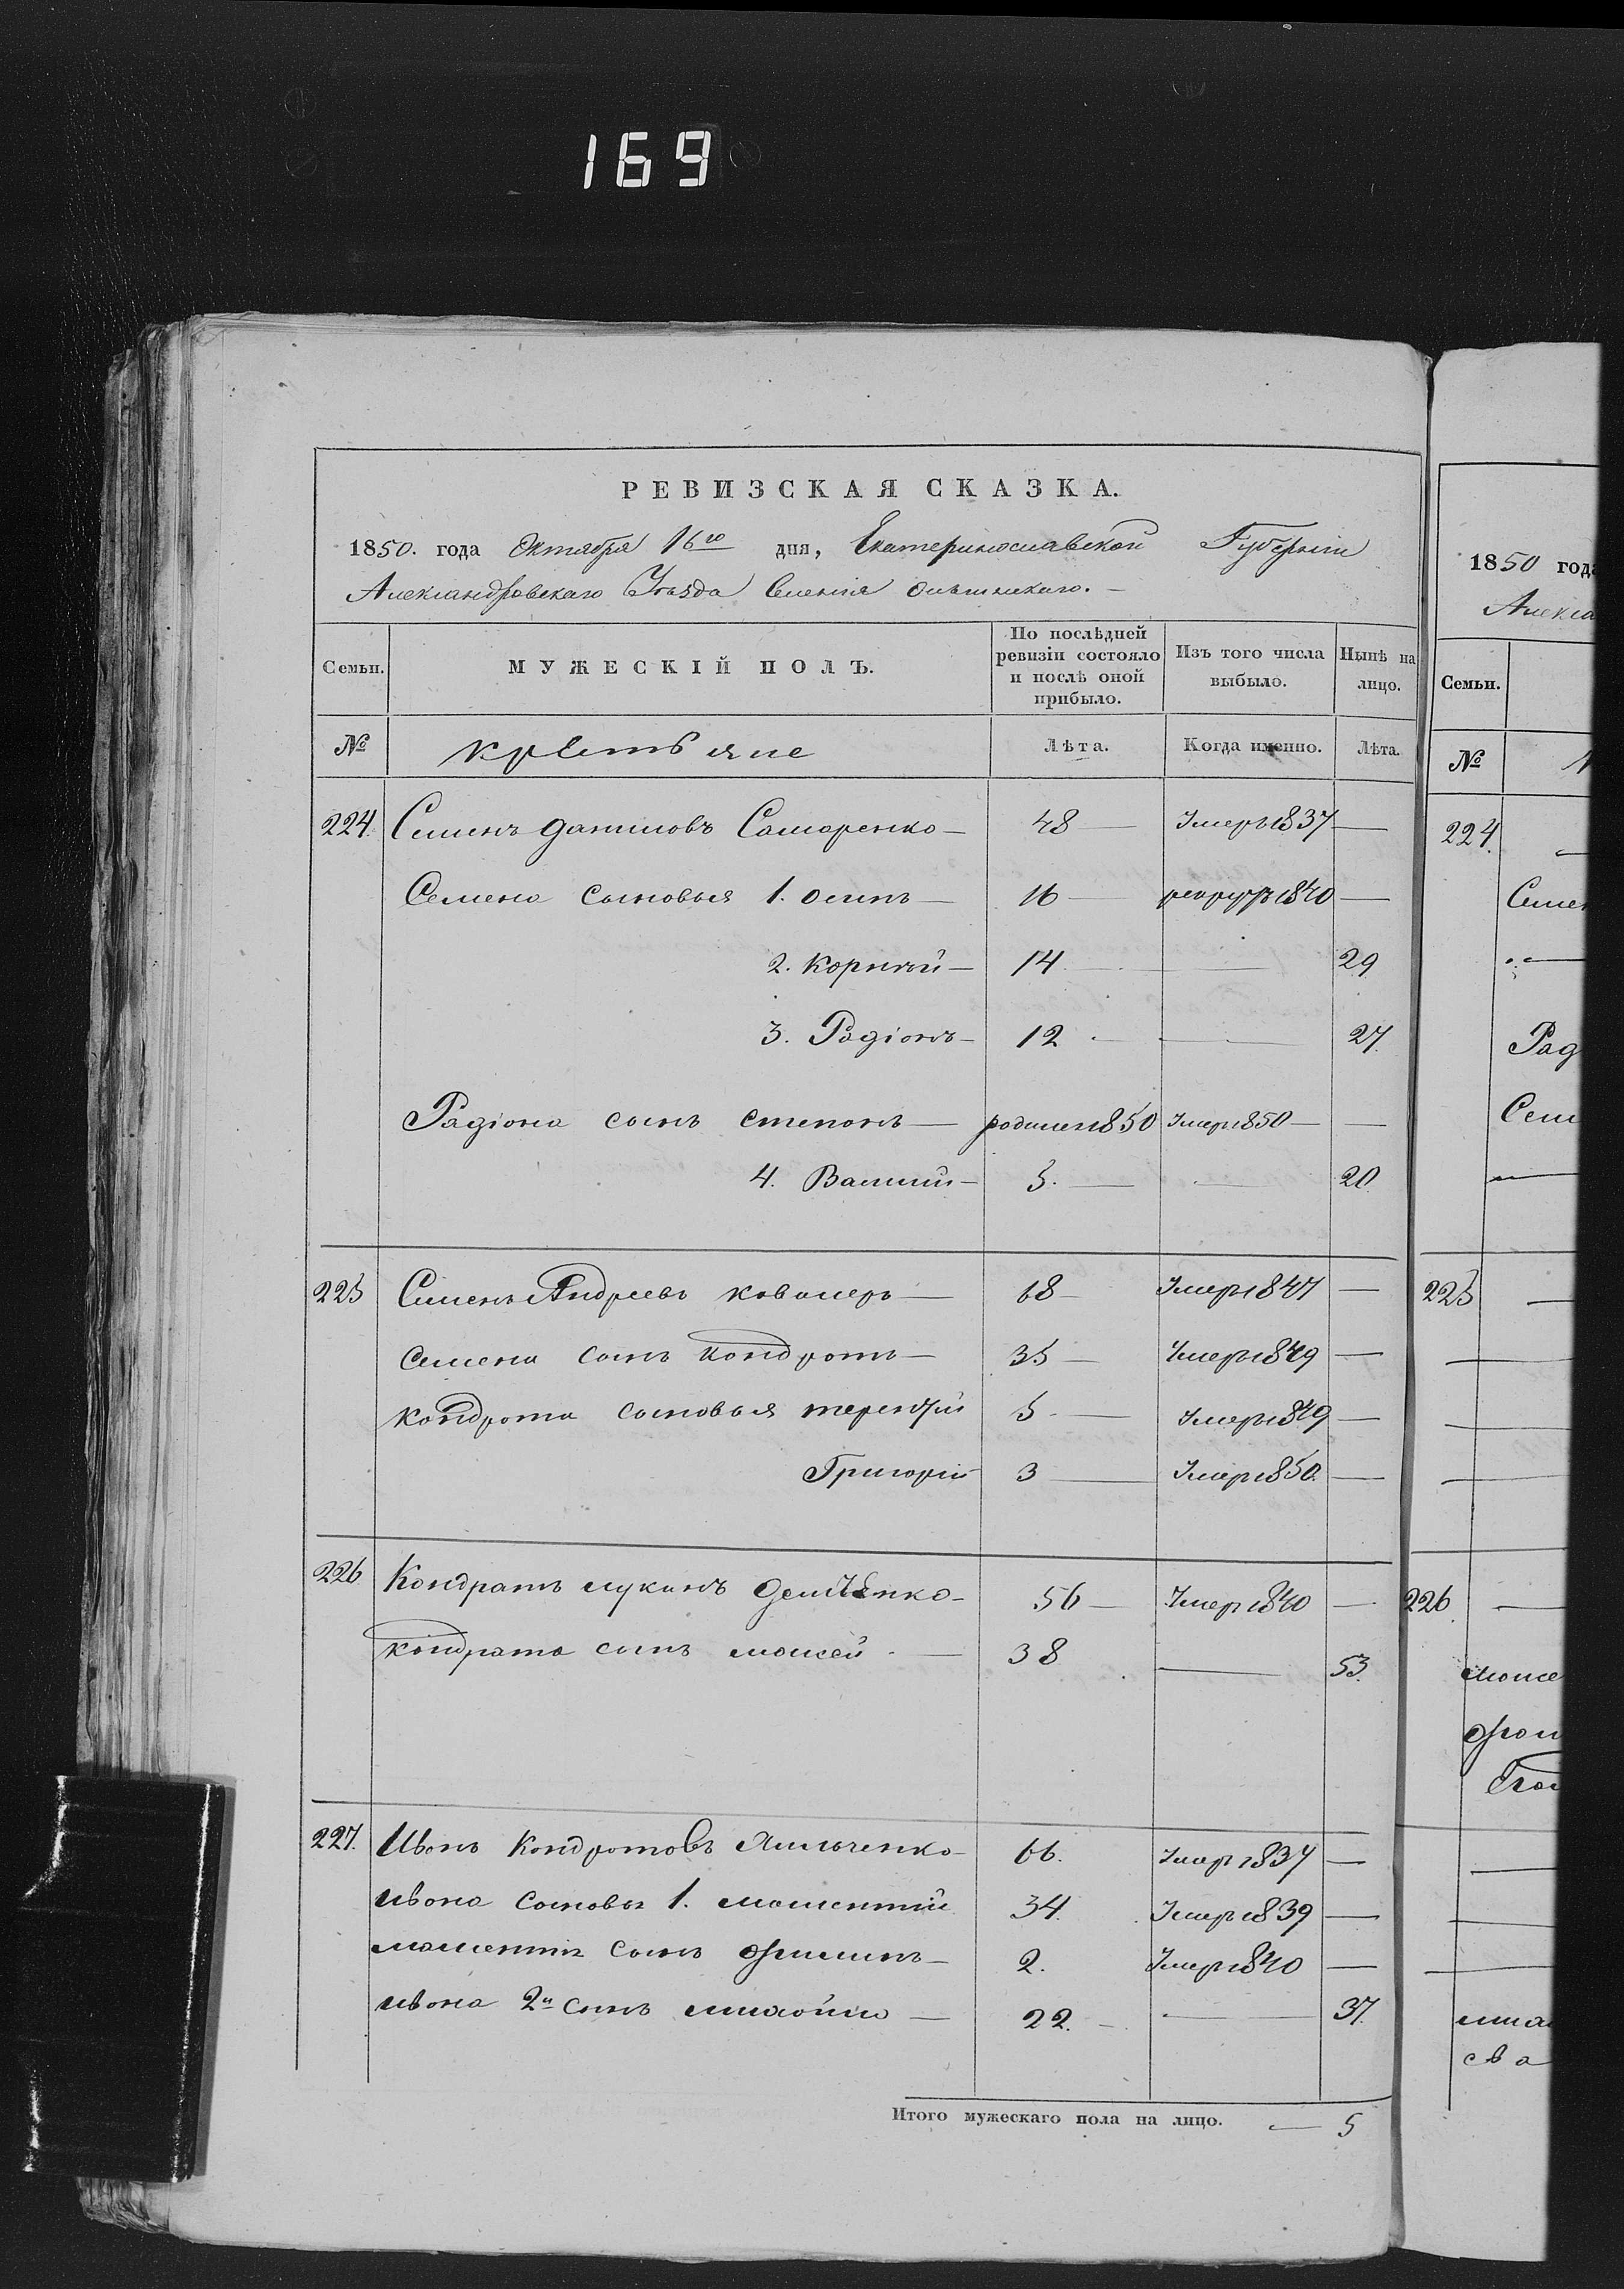 169
РЕВИЗСКАЯ СКАЗКА.
1850. года Октября 16го дня, Екатеринославской Губерніи
Александровскаго Уѣзда Селенія
Семьи. МУЖЕСКІЙ ПОЛЪ. По послѣдней ревизіи состояло и послѣ оной прибыло. Изъ того числа выбыло. Нынѣ на лицо.
№ крестьяне Лѣта. Когда именно. Лѣта.
224. Семенъ Даниловъ Самаренко — 48 — Умеръ 1837 —
Семена сыновья 1. Осипъ — 16 — рекрутъ 1840 —
2. Корнѣй — 14 — 29
3. Радіонъ — 12 — 27.
Радіона сынъ Степанъ — родился 1850 Умеръ 1850 — —
4. Василий — 5. — — 20
225 Семенъ Андреевъ Ковалеръ — 68 — Умеръ 1847 —
Семена сынъ Кондратъ — 35 — Умеръ 1849 —
Кондрата сыновья Терентій 5 — Умеръ 1849 —
Григорій 3 — Умеръ 1850. —
226 Кондратъ Лукинъ Демченко — 56 — Умеръ 1840 —
Кондрата сынъ Моисей — 38 — 53.
227. Иванъ Кондратовъ 66. Умеръ 1837 —
Ивана сыновья 1. 34. Умеръ 1839 —
сынъ Филипъ — 2. Умеръ 1840 —
Ивана 2й сынъ Михайло — 22. — — 37.
Итого мужескаго пола на лицо. — 5
1850 года
Алекса
Семьи.
№
224.
Семе
Рад
Сем
225
226
моисе